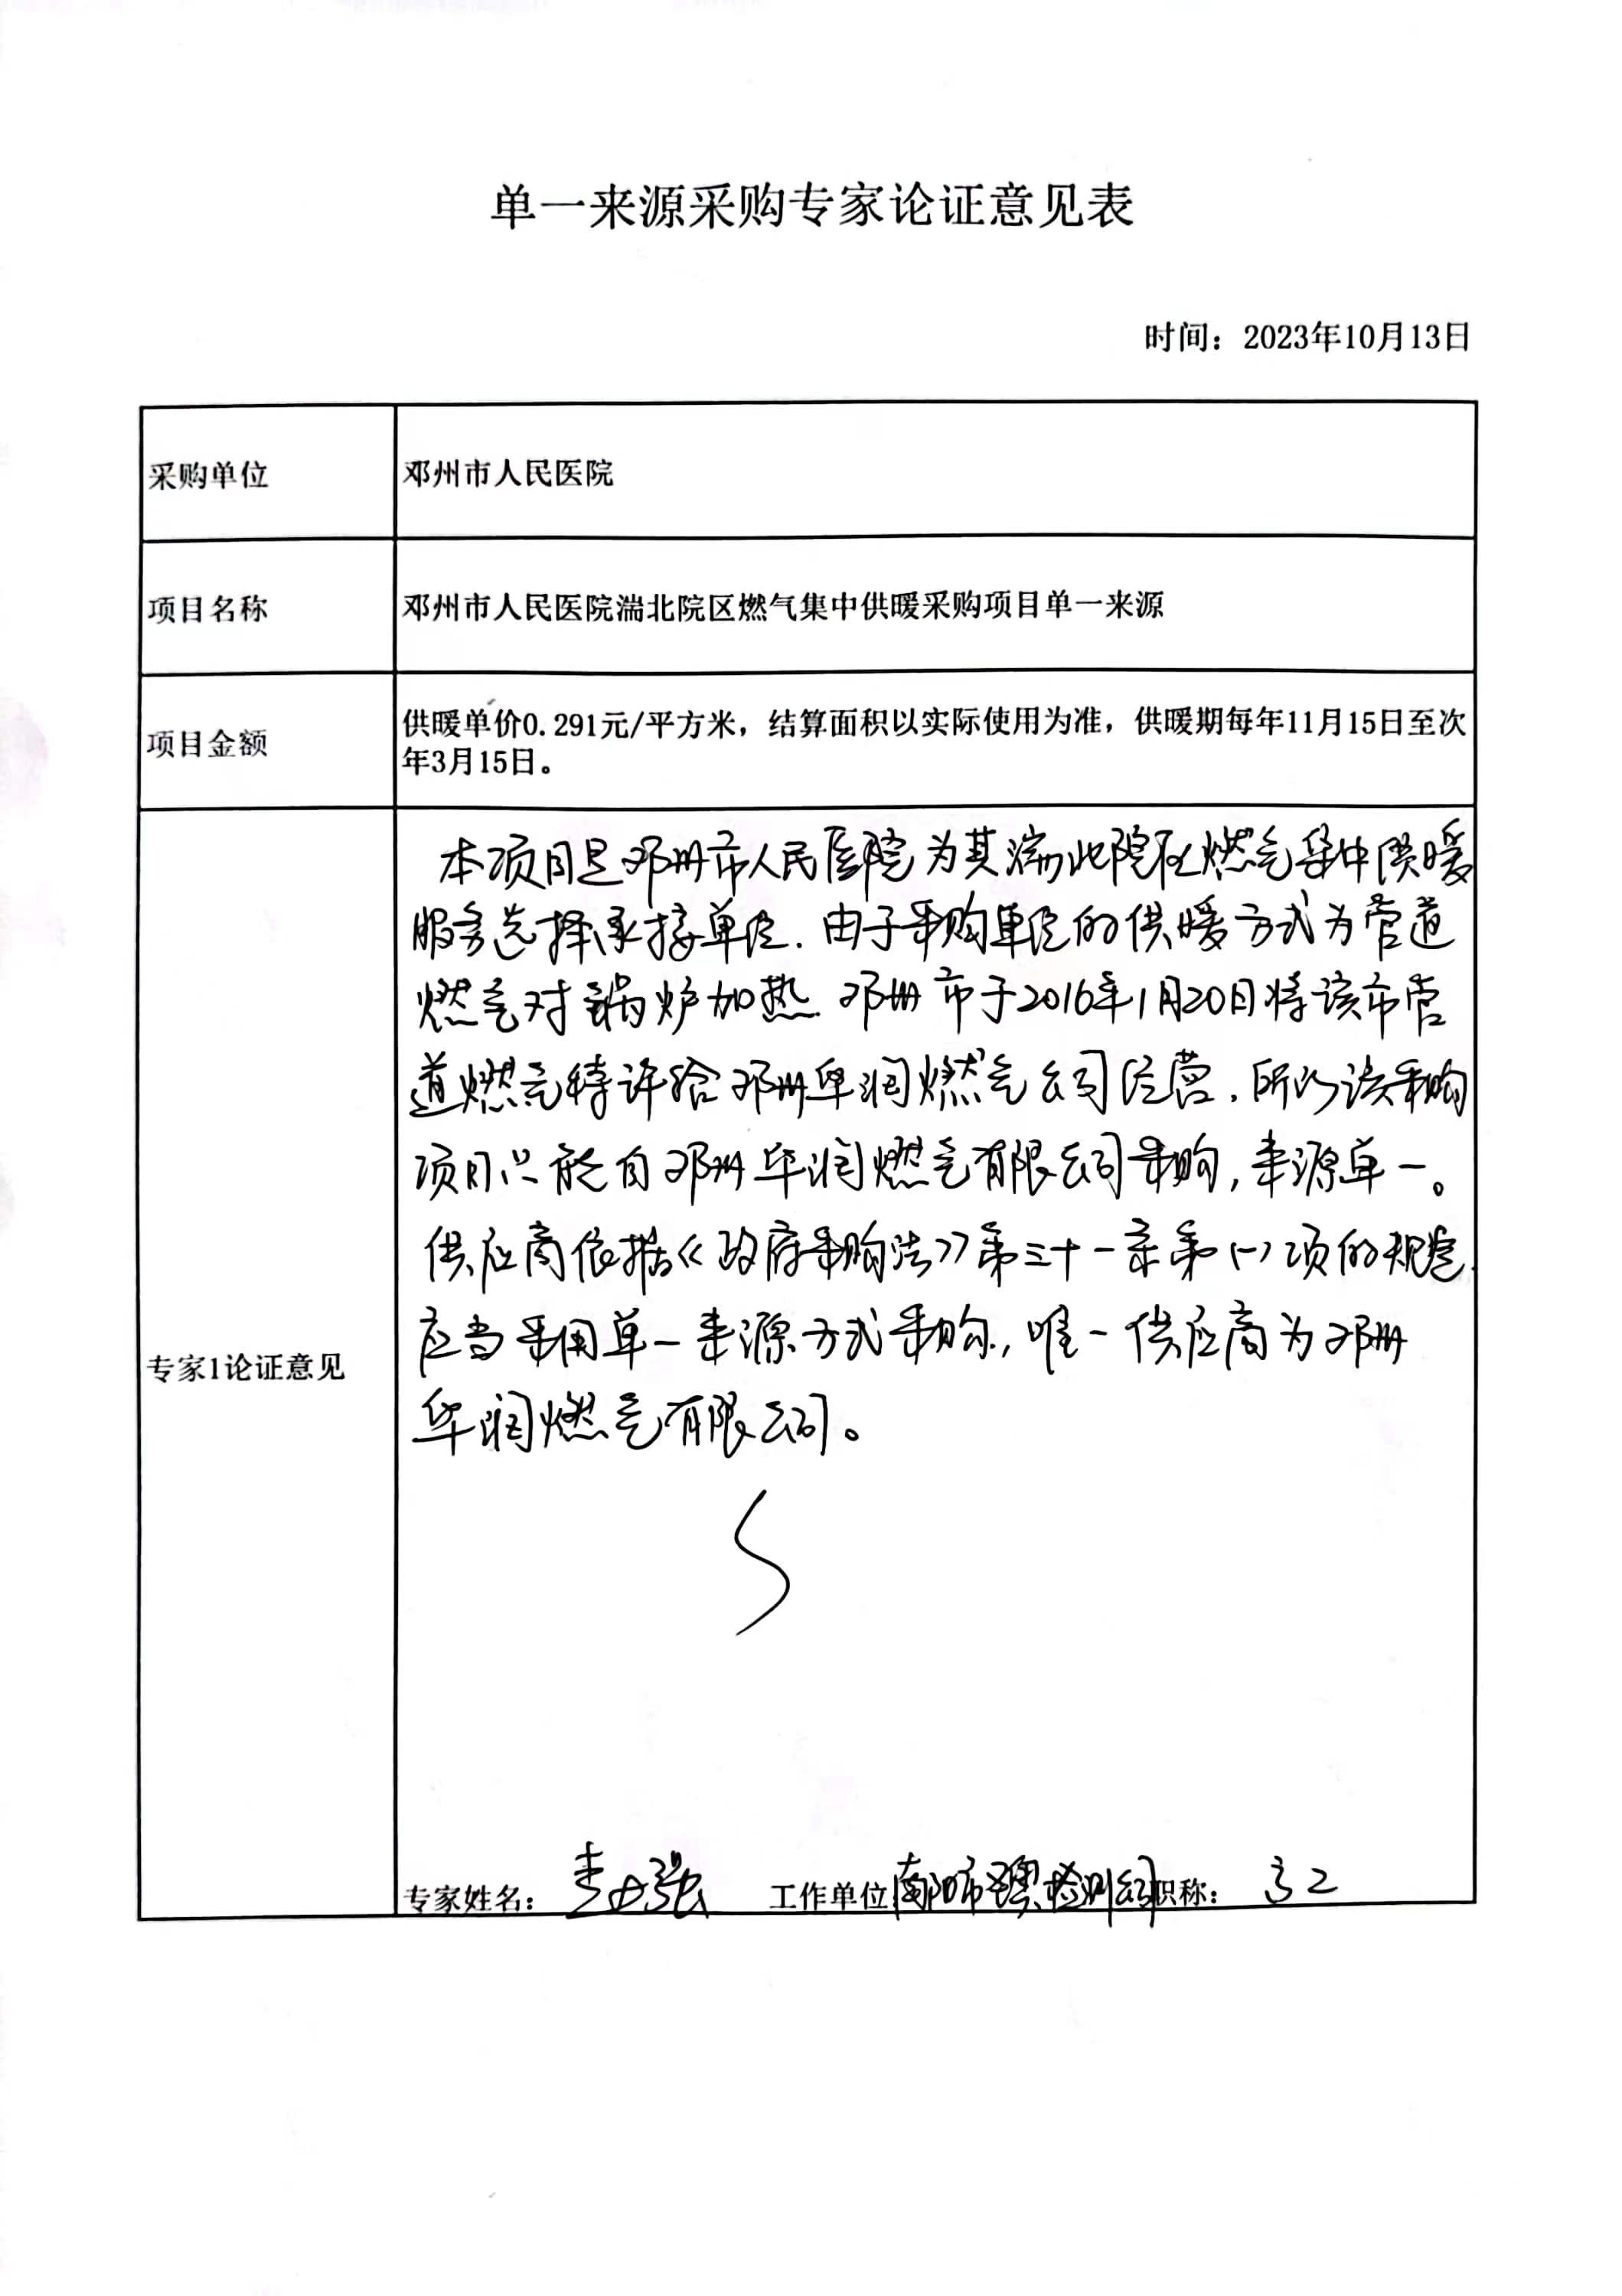 单一来源采购专家论证意见表
时间：2023年10月13日
采购单位
邓州市人民医院
项目名称
邓州市人民医院湍北院区燃气集中供暖采购项目单一来源
项目金额
供暖单价0.291元/平方米，结算面积以实际使用为准，供暖期每年11月15日至次
年3月15日。
专家1论证意见
本项目是邓州市人民医院为其湍北院区燃气集中供暖
服务选择承接单位.由于采购单位的供暖方式为管道
燃气对锅炉加热.邓州市于2016年1月20日将该市管
道燃气特许给邓州华润燃气公司经营，所以该采购
项目只能自邓州华润燃气有限公司采购，来源单一。
供应商依据《政府采购法》第三十一条第(一)项的规定.
应当采用单一来源方式采购，唯一供应商为邓州
华润燃气有限公司。
专家姓名： 工作单位 检测公司 职称： 高工